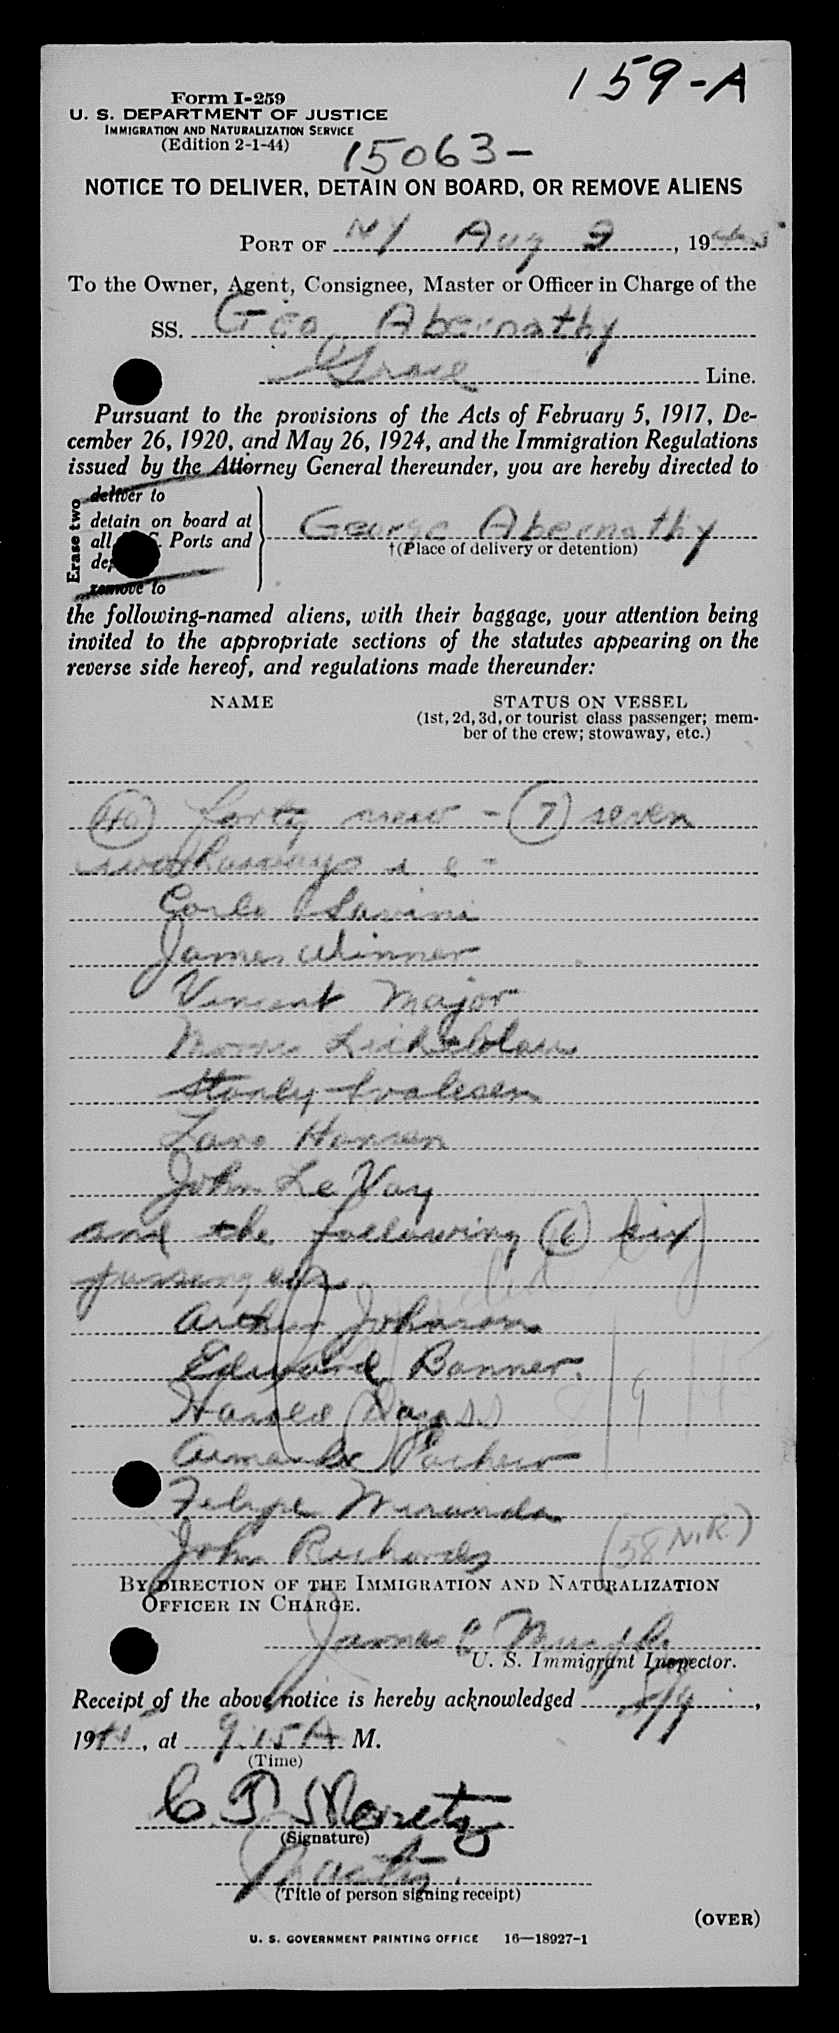 159-A
Form I-259
U. S. DEPARTMENT OF JUSTICE
IMMIGRATION AND NATURALIZATION SERVICE
(Edition 2-1-44)
15063-
NOTICE TO DELIVER, DETAIN ON BOARD, OR REMOVE ALIENS
PORT OF NY Aug 9, 1945
To the Owner, Agent, Consignee, Master or Officer in Charge of the
SS. Geo Abernathy
Grace Line.
Pursuant to the provisions of the Acts of February 5, 1917, De-
cember 26, 1920, and May 26, 1924, and the Immigration Regulations
issued by the Attorney General thereunder, you are hereby directed to
Erase two
deliver to
detain on board at
all Ports and
George Abernathy
†(Place of delivery or detention)
remove to
the following-named aliens, with their baggage, your attention being
invited to the appropriate sections of the statutes appearing on the
reverse side hereof, and regulations made thereunder:
NAME STATUS ON VESSEL
(1st, 2d, 3d, or tourist class passenger; mem-
ber of the crew; stowaway, etc.)
(40) forty crew - (7) seven
workaways i e -
Carlo Savini
James Winner
Vincent Major
Stanley
Lars Hansen
John Le Vay
and the following (6) six
passengers
Arthur Johnson
Edward Banner
Harold
8/9/45
Pacheco
Felipe Miranda
John Richards (58 N.R.)
BY DIRECTION OF THE IMMIGRATION AND NATURALIZATION
OFFICER IN CHARGE.
James E Murphy
U. S. Immigrant Inspector.
Receipt of the above notice is hereby acknowledged 8/9,
1945, at 9.15 A M.
(Time)
(Signature)
Master
(Title of person signing receipt)
(OVER)
U. S. GOVERNMENT PRINTING OFFICE 16—18927-1